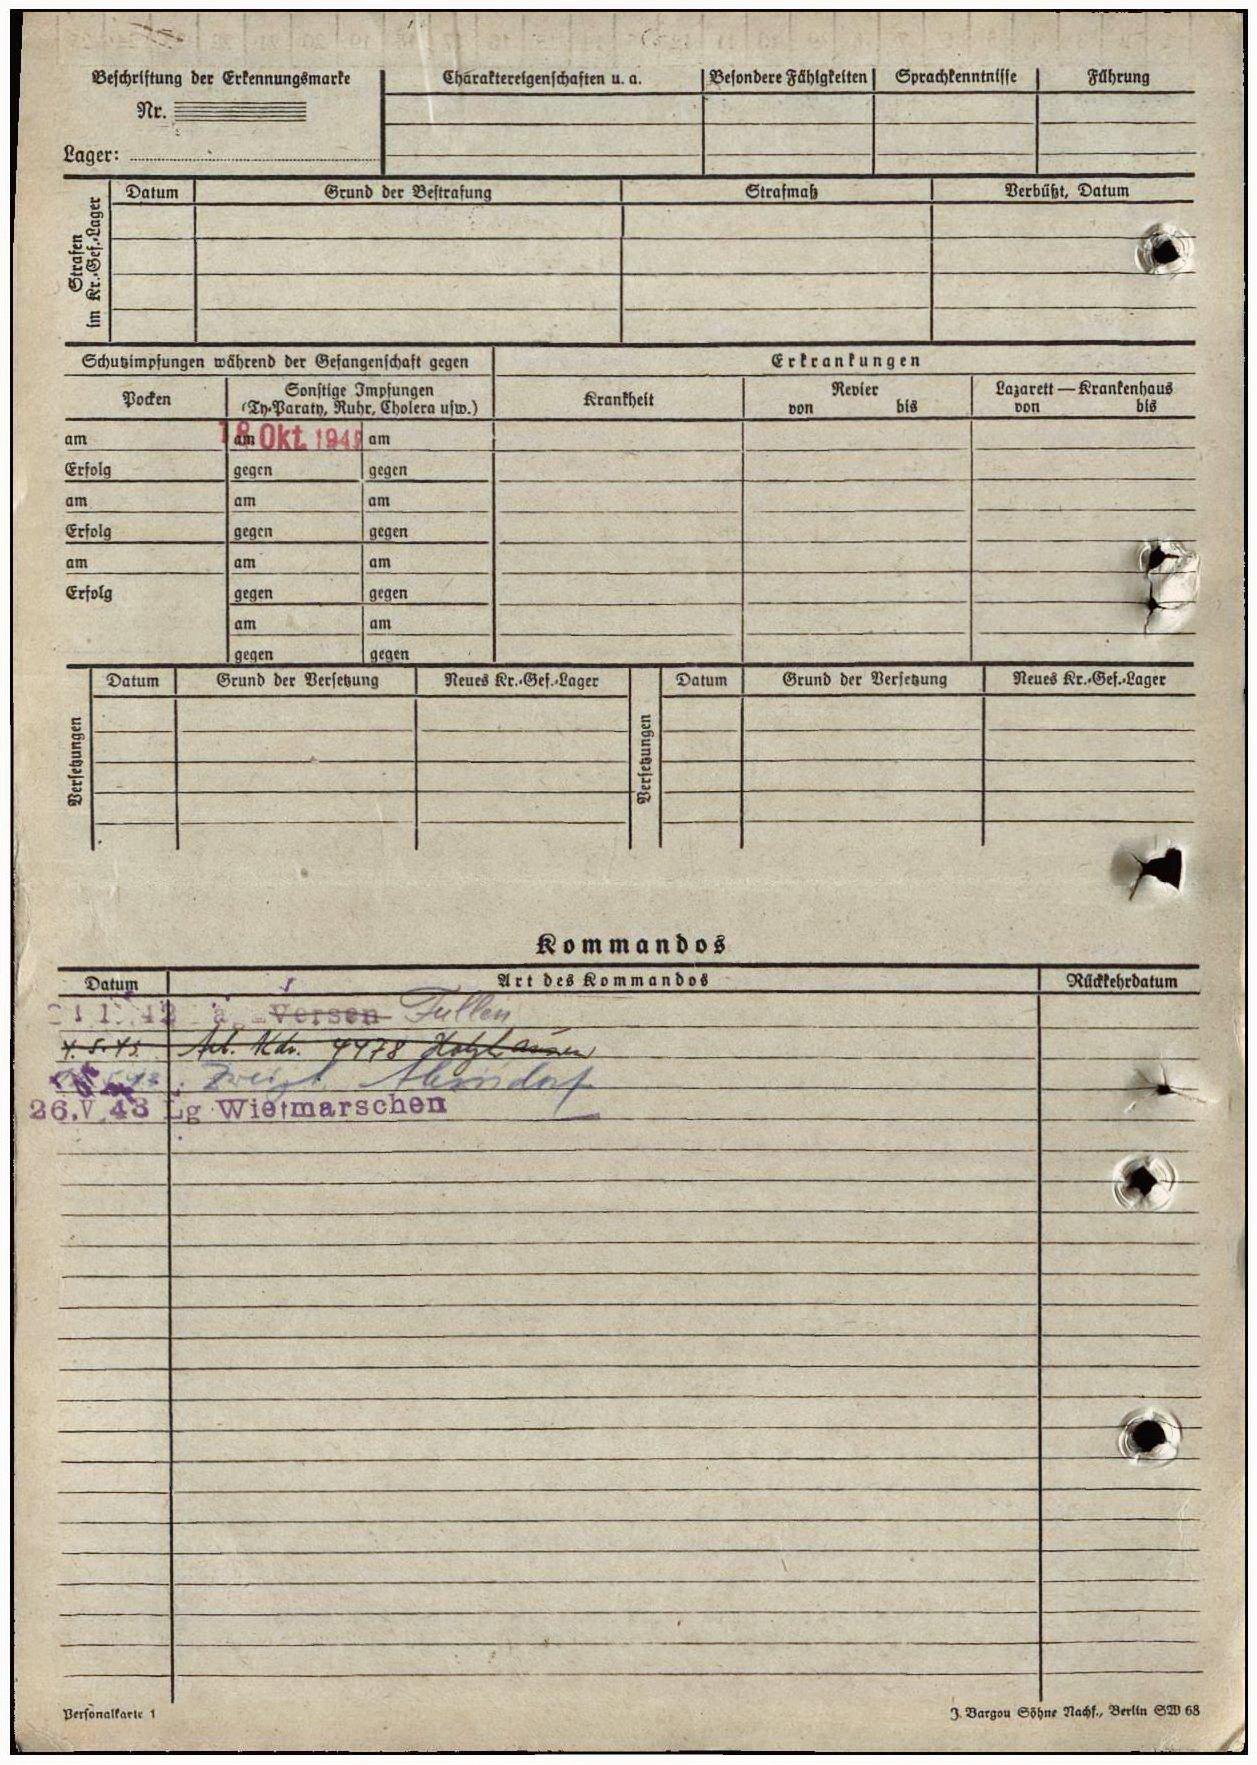 Beschriftung der Erkennungsmarke
Nr.
Lager:
Charaktereigenschaften u. a.
Besondere Fähigkeiten
Sprachkenntnisse
Führung
Strafen
im Kr.-Gef.-Lager
Datum
Grund der Bestrafung
Strafmaß
Verbüßt, Datum
Schutzimpfungen während der Gefangenschaft gegen
Erkrankungen
Pocken
Sonstige Impfungen
(Ty.-Paraty, Ruhr, Cholera usw.)
Krankheit
Revier
von bis
Lazarett — Krankenhaus
von bis
am am 18 Okt. 194 am
Erfolg gegen gegen
am am am
Erfolg gegen gegen
am am am
Erfolg gegen gegen
am am
gegen gegen
Versetzungen
Datum Grund der Versetzung Neues Kr.-Gef.-Lager
Versetzungen
Datum Grund der Versetzung Neues Kr.-Gef.-Lager
Kommandos
Datum Art des Kommandos Rückkehrdatum
42 Versen Fullen
4.5.43. Arb. Kdo. 4478
Zweigl.
26.V.43 Lg Wietmarschen
Personalkarte 1
J. Bargou Söhne Nachf., Berlin SW 68